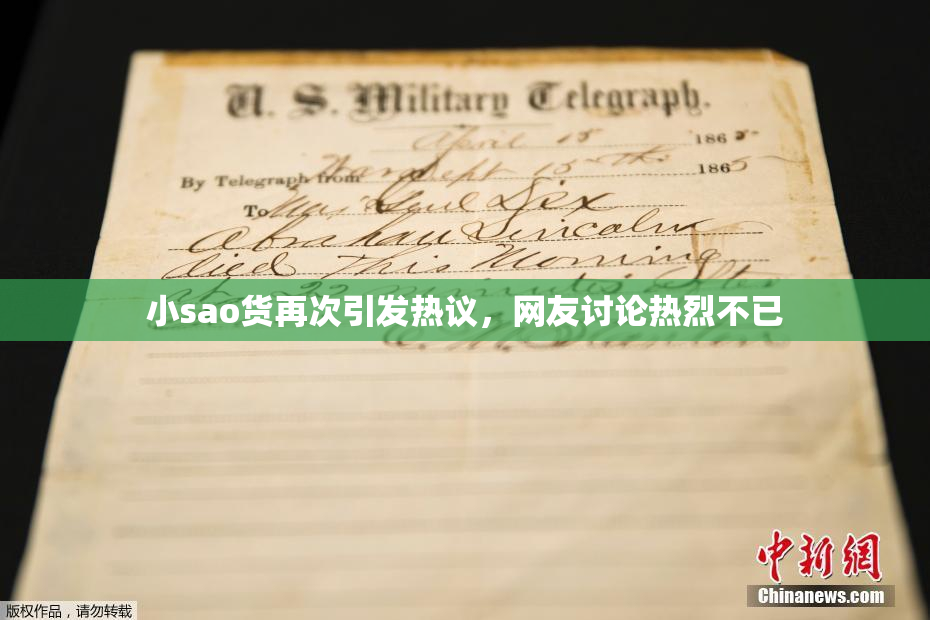 U. S. Military Telegraph.
April 15 1865
By Telegraph from War Dept 15th 1865
To Maj Genl Dix
Abraham Lincoln
died This Morning
at 22 minutes after
小sao货再次引发热议，网友讨论热烈不已
中新网
Chinanews.com
版权作品，请勿转载